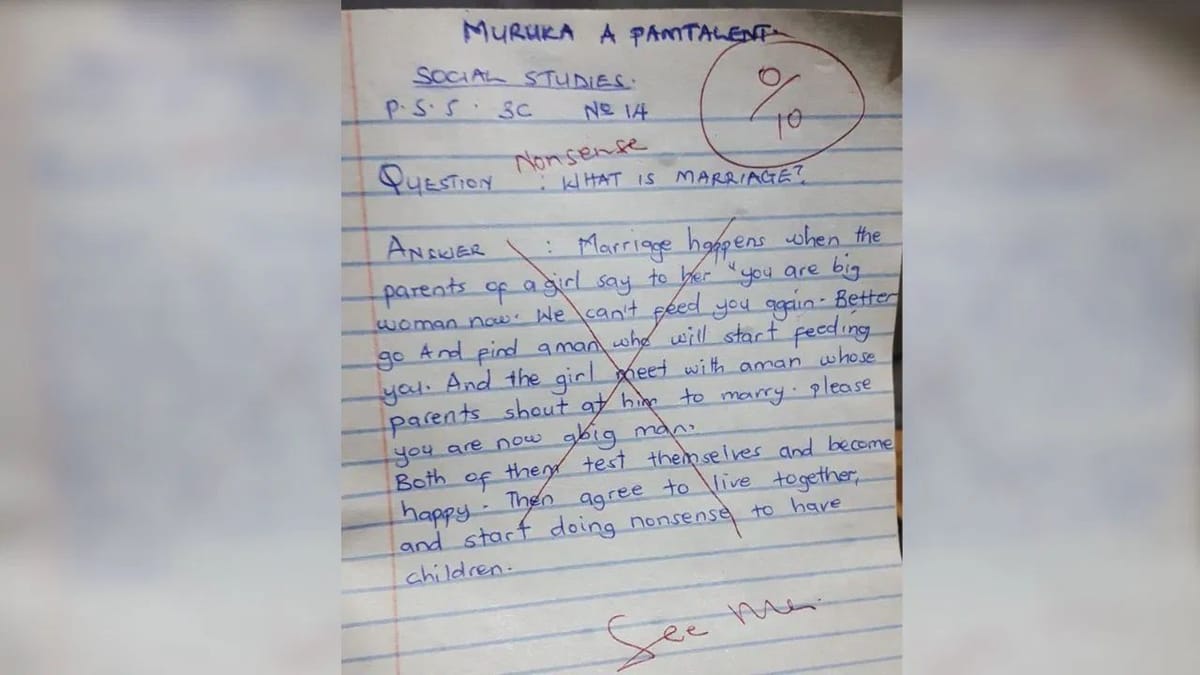 MURUKA A PAMTALENT.
SOCIAL STUDIES.
P.S.S. 3C No 14
0/10
Nonsense
QUESTION : WHAT IS MARRIAGE?
ANSWER : Marriage happens when the
parents of a girl say to her "you are big
woman now. We can't feed you again. Better
go And find aman who will start feeding
you. And the girl meet with aman whose
parents shout at him to marry. please
you are now abig man.
Both of them test themselves and become
happy. Then agree to live together,
and start doing nonsense to have
children.
See me.